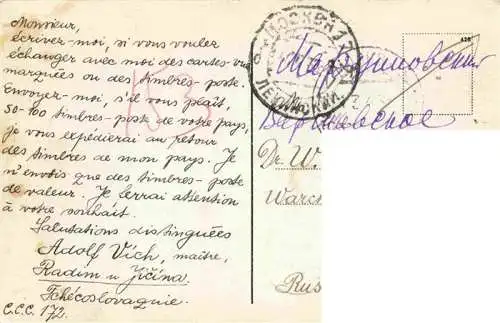 Monsieur,
écrivez-moi, si vous voulez
échanger avec moi des cartes vues
marquées ou des timbres-poste.
Envoyez-moi, s'il vous plaît,
50-100 timbres-poste de votre pays,
je vous expédierai au retour
des timbres de mon pays. Je
n'envois que des timbres-poste
de valeur. Je ferrai attention
à votre souhait.
Salutations distinguées
Adolf Vich, maître,
Radim u Jičína.
Tchécoslovaquie.
C.C.C. 172.
МОСКВА
Dr. W.
Warcz
Rus